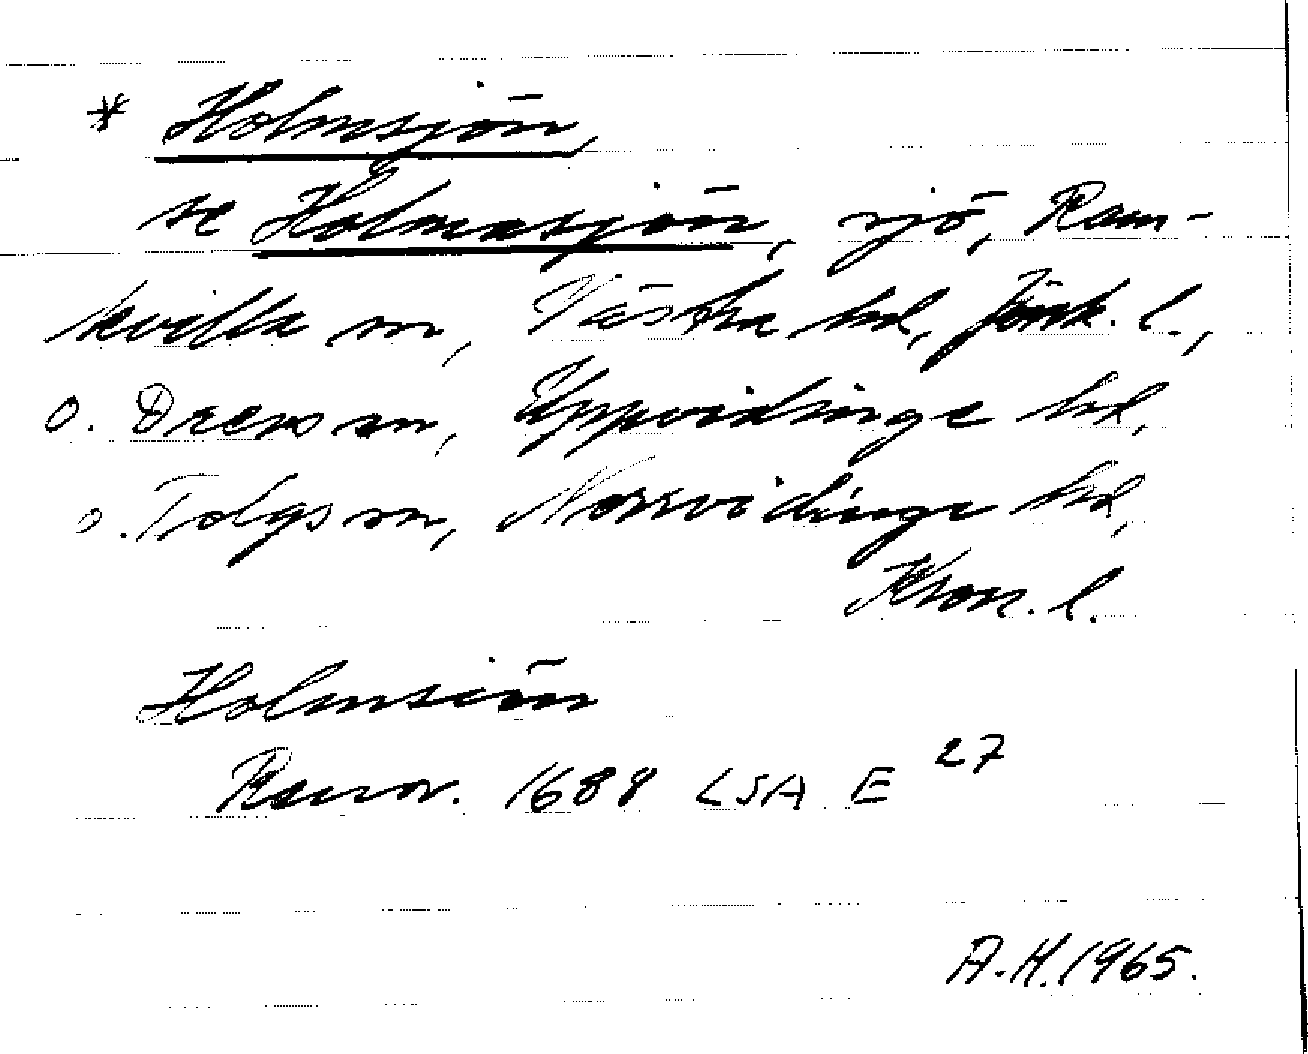 * Holmsjön,
se Holmasjön, sjö, Ram-
kvilla sn, Västra hd, Jönk. l.,
o. Drevs sn, Uppvidinge hd,
o. Tolgs sn, Norrvidinge hd,
Kron. l.
Holmsiön
Ransv. 1688 LSA E 27
A.H. 1965.